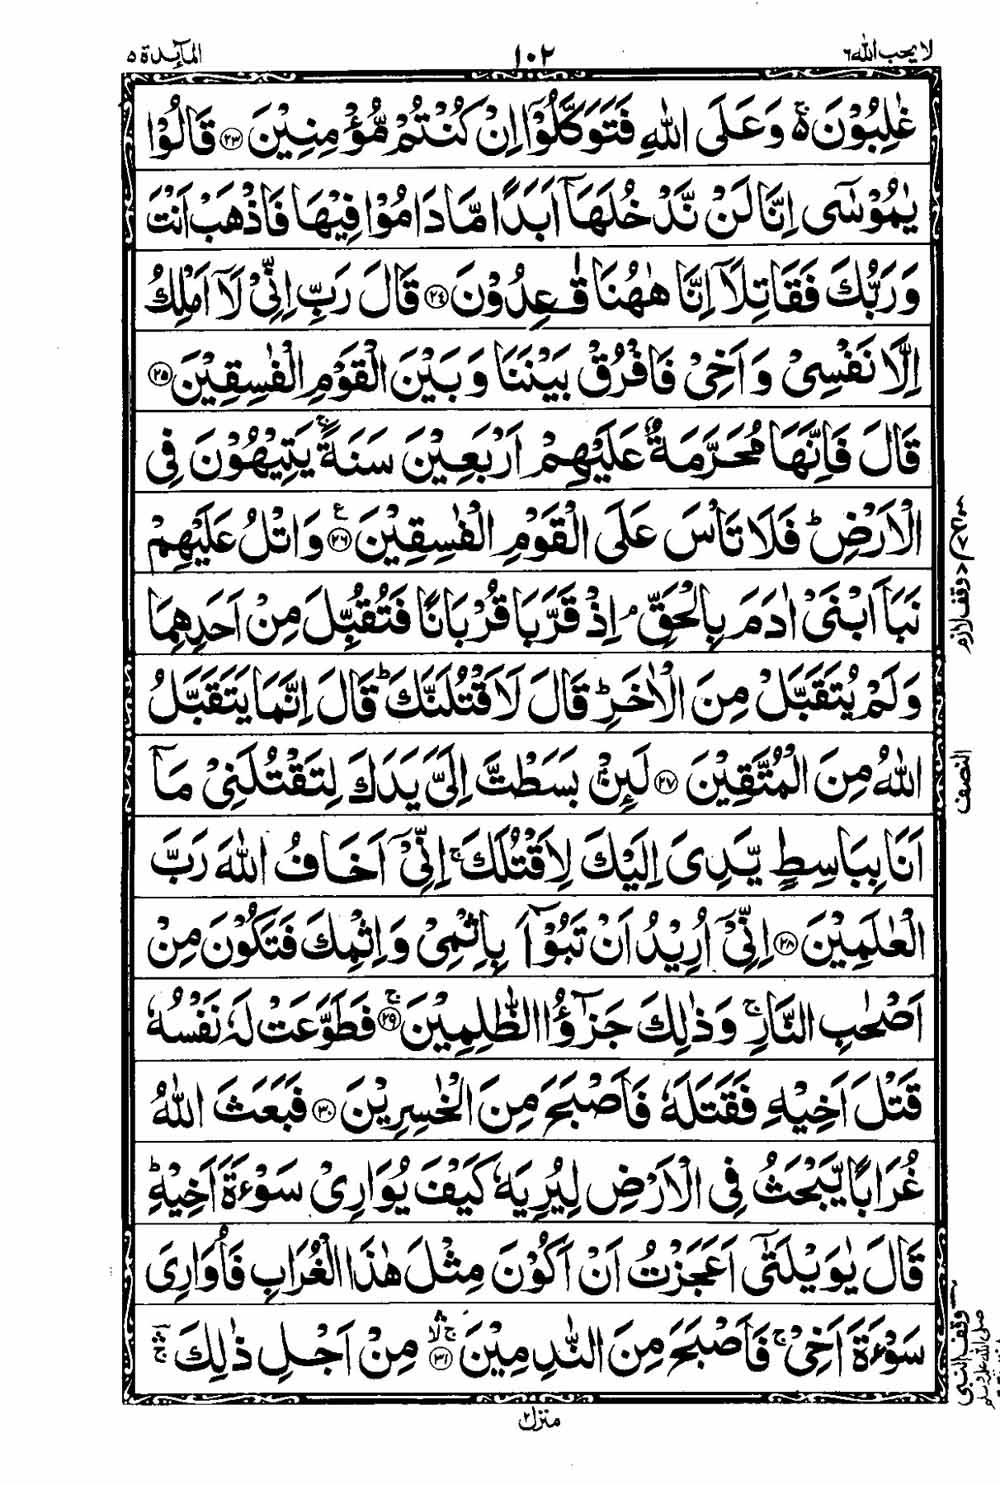 لا يحب الله ٦
١٠٢
المآىِٕدة ٥
غٰلِبُوْنَ ۬ۚ وَعَلَى اللّٰهِ فَتَوَكَّلُوْۤا اِنْ كُنْتُمْ مُّؤْمِنِيْنَ ﴿۲۳﴾ قَالُوْا
يٰمُوْسٰۤى اِنَّا لَنْ نَّدْخُلَهَاۤ اَبَدًا مَّا دَامُوْا فِيْهَا فَاذْهَبْ اَنْتَ
وَرَبُّكَ فَقَاتِلَاۤ اِنَّا هٰهُنَا قٰعِدُوْنَ ﴿۲۴﴾ قَالَ رَبِّ اِنِّيْ لَاۤ اَمْلِكُ
اِلَّا نَفْسِيْ وَاَخِيْ فَافْرُقْ بَيْنَنَا وَبَيْنَ الْقَوْمِ الْفٰسِقِيْنَ ﴿۲۵﴾
قَالَ فَاِنَّهَا مُحَرَّمَةٌ عَلَيْهِمْ اَرْبَعِيْنَ سَنَةً ۚ يَتِيْهُوْنَ فِي
الْاَرْضِ ؕ فَلَا تَاْسَ عَلَى الْقَوْمِ الْفٰسِقِيْنَ ﴿۲۶﴾ ع وَاتْلُ عَلَيْهِمْ
نَبَاَ ابْنَيْ اٰدَمَ بِالْحَقِّ ۘ اِذْ قَرَّبَا قُرْبَانًا فَتُقُبِّلَ مِنْ اَحَدِهِمَا
وَلَمْ يُتَقَبَّلْ مِنَ الْاٰخَرِ ؕ قَالَ لَاَقْتُلَنَّكَ ؕ قَالَ اِنَّمَا يَتَقَبَّلُ
اللّٰهُ مِنَ الْمُتَّقِيْنَ ﴿۲۷﴾ لَىِٕنْۢ بَسَطْتَّ اِلَيَّ يَدَكَ لِتَقْتُلَنِيْ مَاۤ
اَنَا بِبَاسِطٍ يَّدِيَ اِلَيْكَ لِاَقْتُلَكَ ۚ اِنِّيْۤ اَخَافُ اللّٰهَ رَبَّ
الْعٰلَمِيْنَ ﴿۲۸﴾ اِنِّيْۤ اُرِيْدُ اَنْ تَبُوْٓاَ بِاِثْمِيْ وَاِثْمِكَ فَتَكُوْنَ مِنْ
اَصْحٰبِ النَّارِ ۚ وَذٰلِكَ جَزٰٓؤُا الظّٰلِمِيْنَ ﴿۲۹﴾ۚ فَطَوَّعَتْ لَهٗ نَفْسُهٗ
قَتْلَ اَخِيْهِ فَقَتَلَهٗ فَاَصْبَحَ مِنَ الْخٰسِرِيْنَ ﴿۳۰﴾ فَبَعَثَ اللّٰهُ
غُرَابًا يَّبْحَثُ فِي الْاَرْضِ لِيُرِيَهٗ كَيْفَ يُوَارِيْ سَوْءَةَ اَخِيْهِ ؕ
قَالَ يٰوَيْلَتٰۤى اَعَجَزْتُ اَنْ اَكُوْنَ مِثْلَ هٰذَا الْغُرَابِ فَاُوَارِيَ
سَوْءَةَ اَخِيْ ۚ فَاَصْبَحَ مِنَ النّٰدِمِيْنَ ﴿۳۱﴾ۚۙ مِنْ اَجْلِ ذٰلِكَ ۛۚ
وقف لازم
النصف
وقف النبي
صلى الله عليه وسلم
منزل ٢